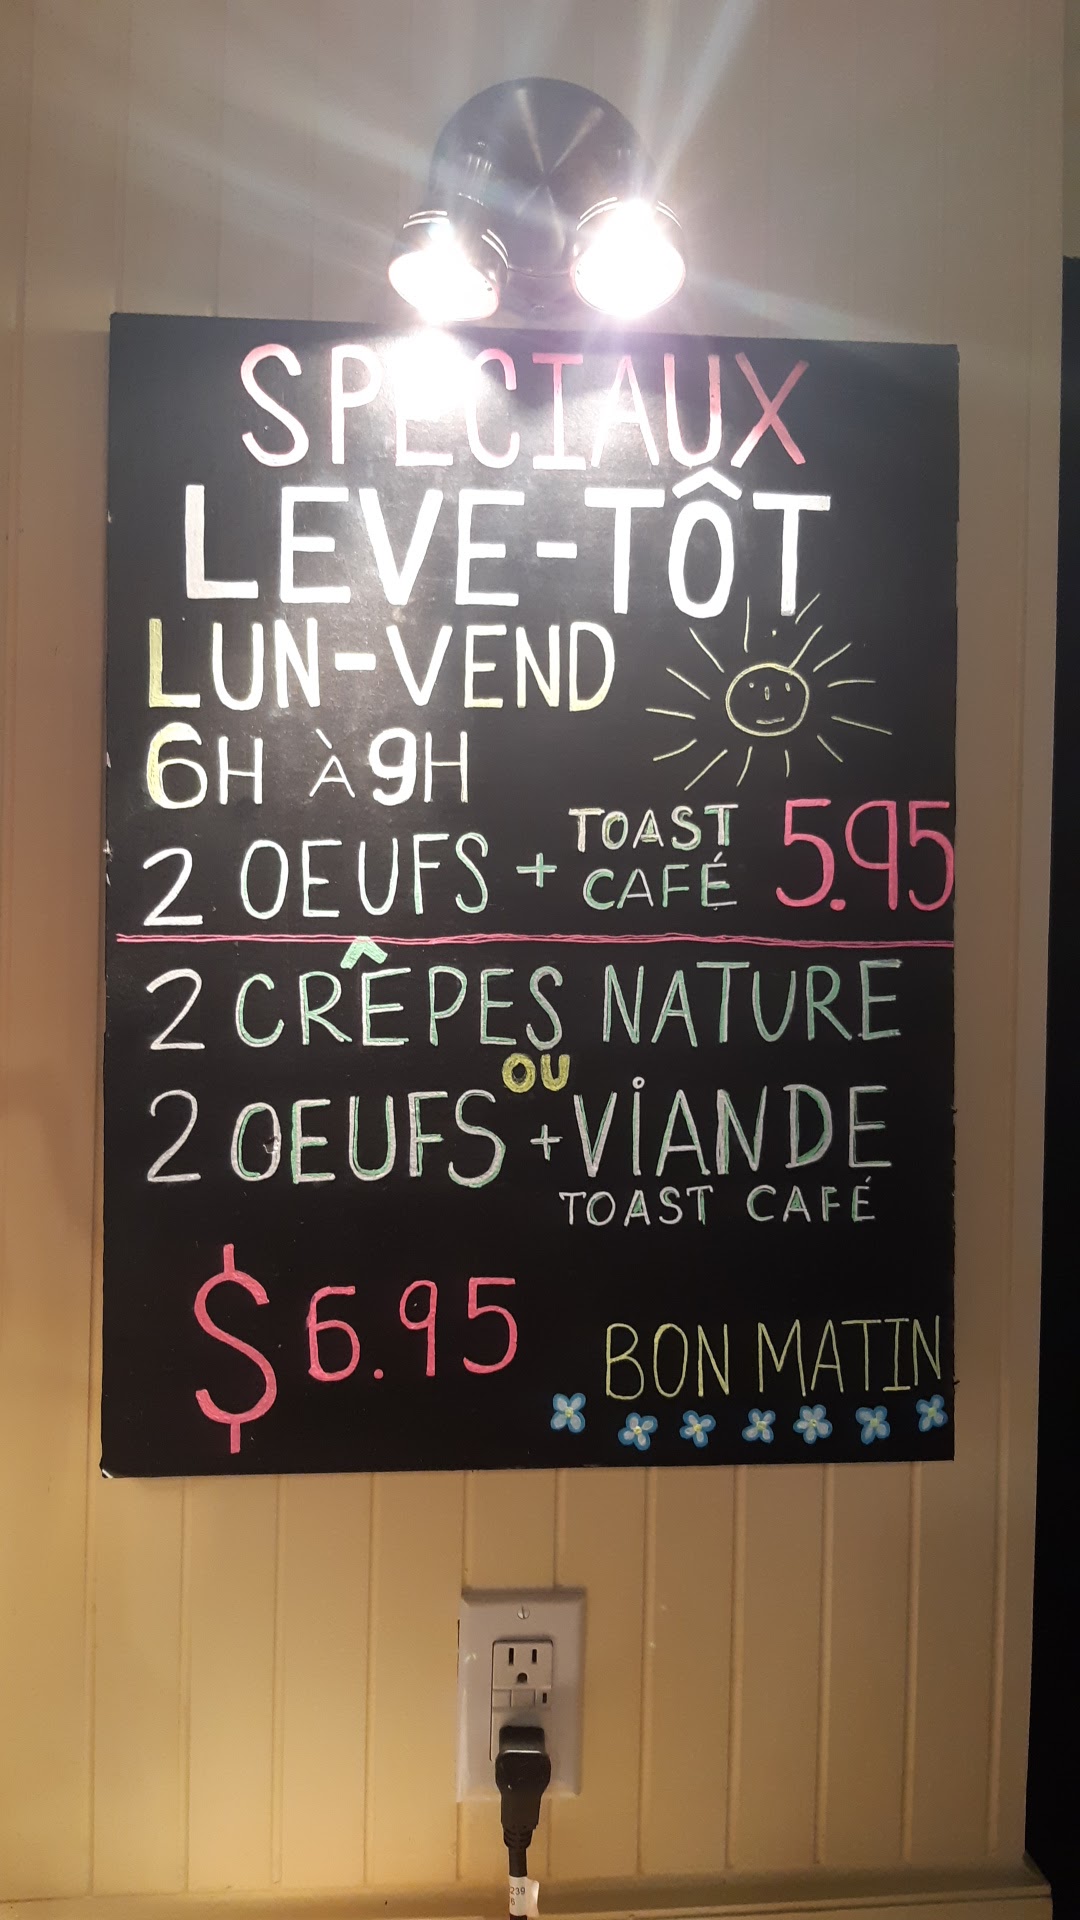 SPECIAUX
LEVE-TÔT
LUN-VEND
6H À 9H
2 OEUFS + TOAST CAFÉ 5.95
2 CRÊPES NATURE
OU
2 OEUFS + VIANDE
TOAST CAFÉ
$6.95
BON MATIN
239
6